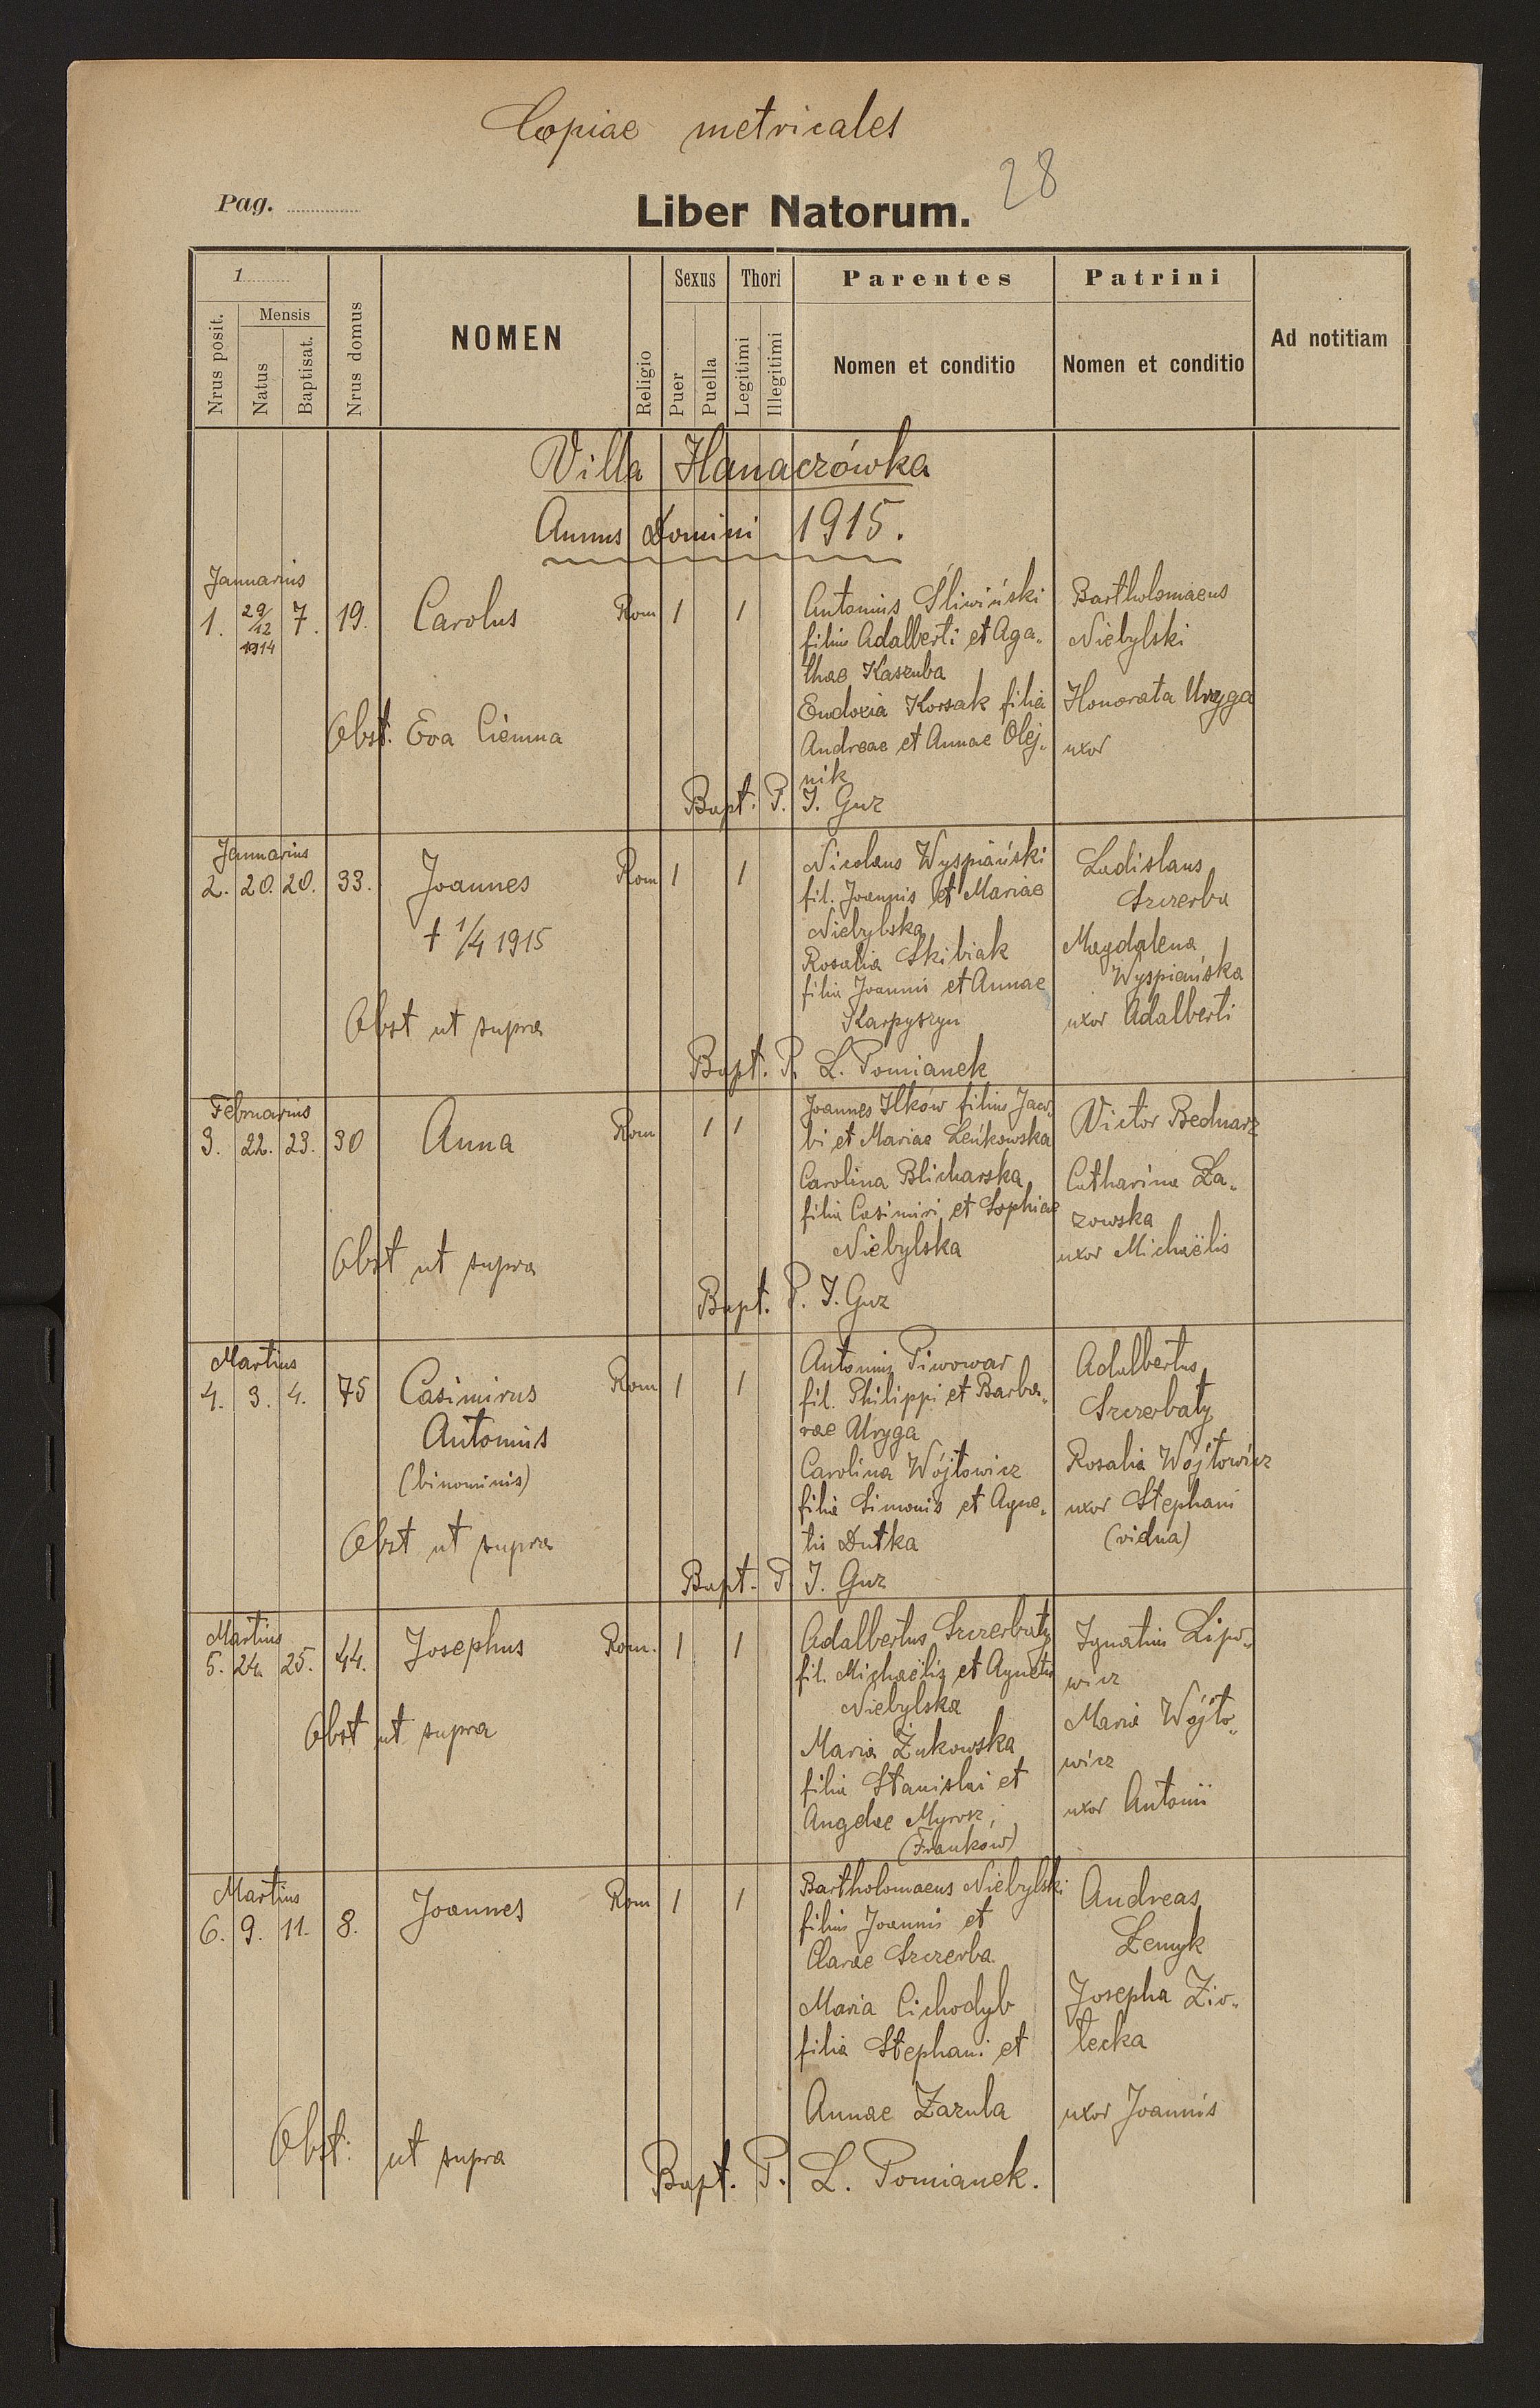 Copiae metricales
28
Pag.
Liber Natorum.
1
Nrus posit.
Mensis
Natus
Baptisat.
Nrus domus
NOMEN
Religio
Sexus
Puer
Puella
Thori
Legitimi
Illegitimi
Parentes
Nomen et conditio
Patrini
Nomen et conditio
Ad notitiam
Villa Hanaczówka
Annus Domini 1915.
Januarius
1. 29/12 1914 7. 19. Carolus Rom 1 1
Antonius Śliwiński
filius Adalberti et Aga„
thae Kaszuba
Eudoxia Korsak filia
Andreae et Annae Olej„
nik
Bartholomaeus
Niebylski
Honorata Uryga
uxor
Obst. Eva Ciemna
Bapt. P. J. Guz
Januarius
2. 20. 20. 33. Joannes Rom 1 1
† 1/4 1915
Nicolaus Wyspiański
fil. Joannis et Mariae
Niebylska
Rosalia Skibiak
filia Joannis et Annae
Karpyszyn
Ladislaus
Szczerba
Magdalena
Wyspiańska
uxor Adalberti
Obst ut supra
Bapt. P. L. Pomianek
Februarius
3. 22. 23. 30 Anna Rom 1 1
Joannes Ilków filius Jaco„
bi et Mariae Leńkowska
Carolina Blicharska
filia Casimiri et Sophiae
Niebylska
Victor Bednarz
Catharina Ła„
zowska
uxor Michaëlis
Obst ut supra
Bapt. P. J. Guz
Martius
4. 3. 4. 75 Casimirus Rom 1 1
Antonius
(binominis)
Antonius Piwowar
fil. Philippi et Barba„
rae Uryga
Carolina Wójtowicz
filia Simonis et Agne„
tis Dutka
Adalbertus
Szczerbaty
Rosalia Wójtowicz
uxor Stephani
(vidua)
Obst ut supra
Bapt. P. J. Guz
Martius
5. 24. 25. 44. Josephus Rom. 1 1
Adalbertus Szczerbaty
fil. Michaëlis et Agnetis
Niebylska
Maria Żukowska
filia Stanislai et
Angelae Myrosz;
(Franków)
Ignatius Lipo„
wicz
Maria Wójto„
wicz
uxor Antonii
Obst ut supra
Martius
6. 9. 11. 8. Joannes Rom 1 1
Bartholomaeus Niebylski
filius Joannis et
Clarae Szczerba
Maria Cichodyb
filia Stephani et
Annae Zazula
Andreas
Łemyk
Josepha Zio„
tecka
uxor Joannis
Obst: ut supra
Bapt. P. L. Pomianek.